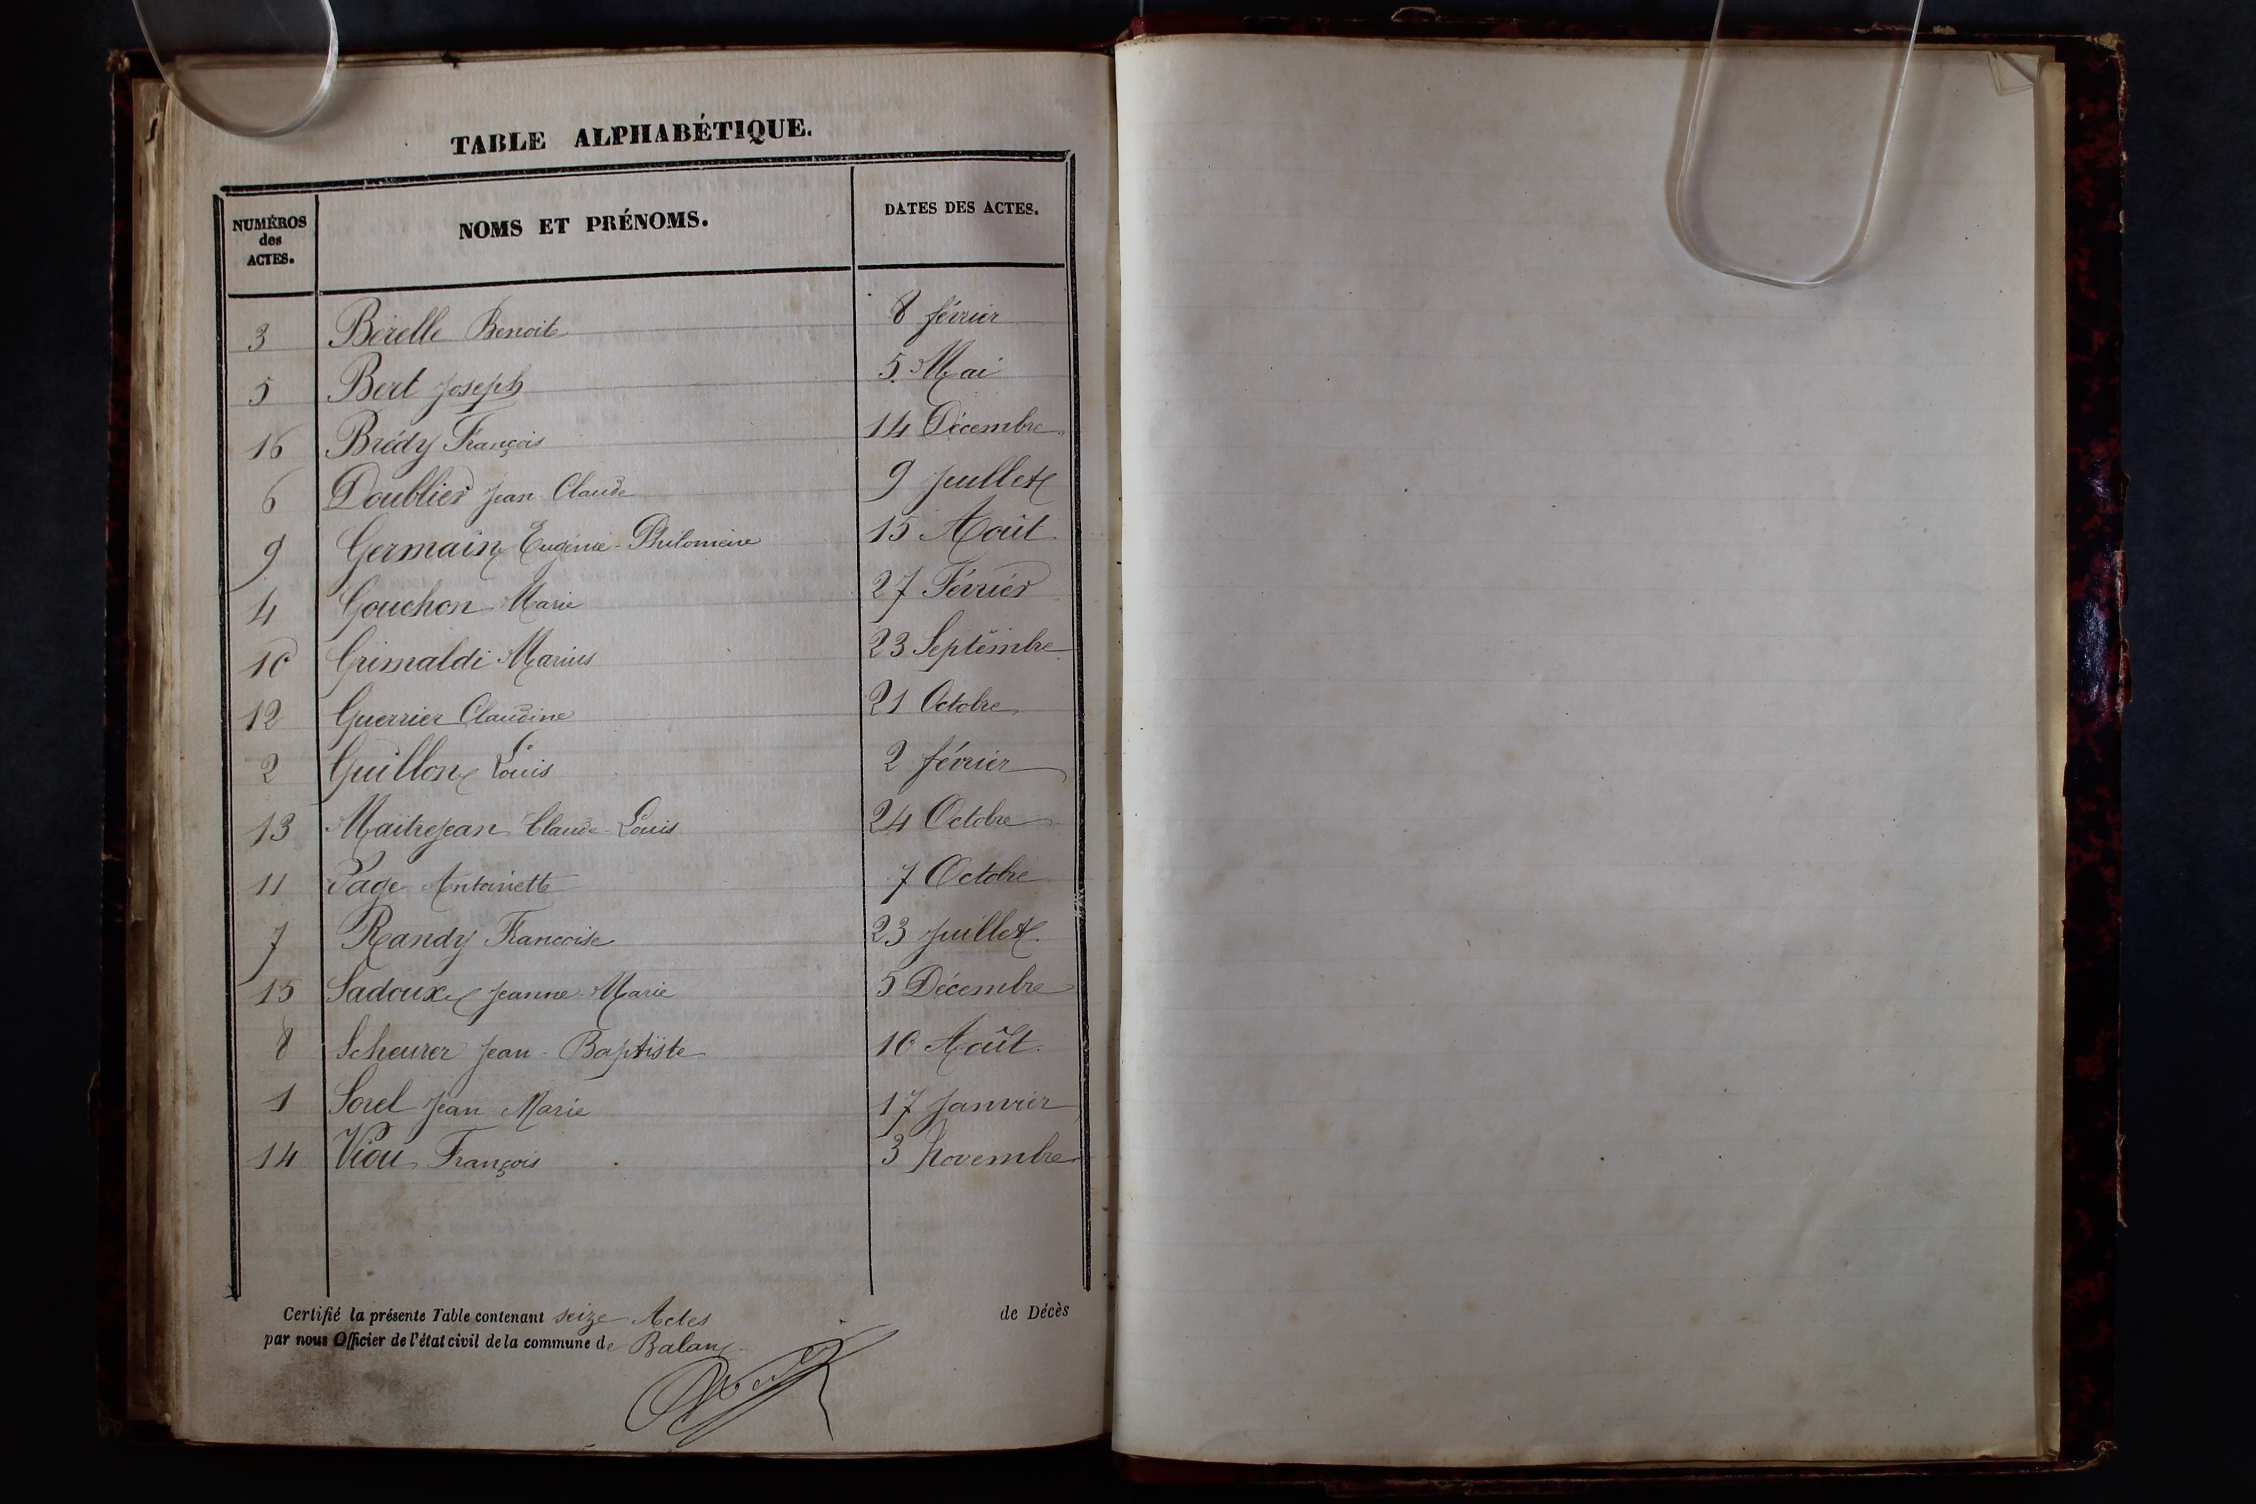 TABLE ALPHABÉTIQUE.
NUMÉROS des ACTES. NOMS ET PRÉNOMS. DATES DES ACTES.
3 Bérelle Benoit 8 février
5 Bert Joseph 5 Mai
16 Brédy François 14 Décembre
6 Doublier Jean Claude 9 Juillet
9 Germain Eugénie-Philomène 15 Août
4 Gouchon Marie 27 Février
10 Grimaldi Marius 23 Septembre
12 Guerrier Claudine 21 Octobre
2 Guillon Louis 2 février
13 Maitrejean Claude-Louis 24 Octobre
11 Page Antoinette 7 Octobre
7 Randy Francoise 23 Juillet
15 Sadoux Jeanne-Marie 5 Décembre
8 Scheurer Jean-Baptiste 10 Août
1 Sorel Jean Marie 17 Janvier
14 Viou François 3 Novembre
Certifié la présente Table contenant seize Actes de Décès
par nous Officier de l'état civil de la commune de Balan